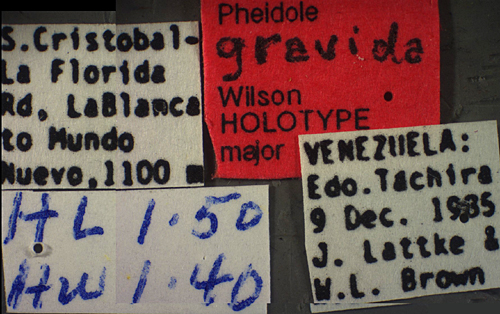 S.Cristobal-
La Florida
Rd, LaBlanca
to Mundo
Nuevo,1100 m
Pheidole
gravida
Wilson
HOLOTYPE
major
VENEZUELA:
Edo.Tachira
9 Dec. 1985
J. Lattke &
W.L. Brown
HL 1.50
HW 1.40